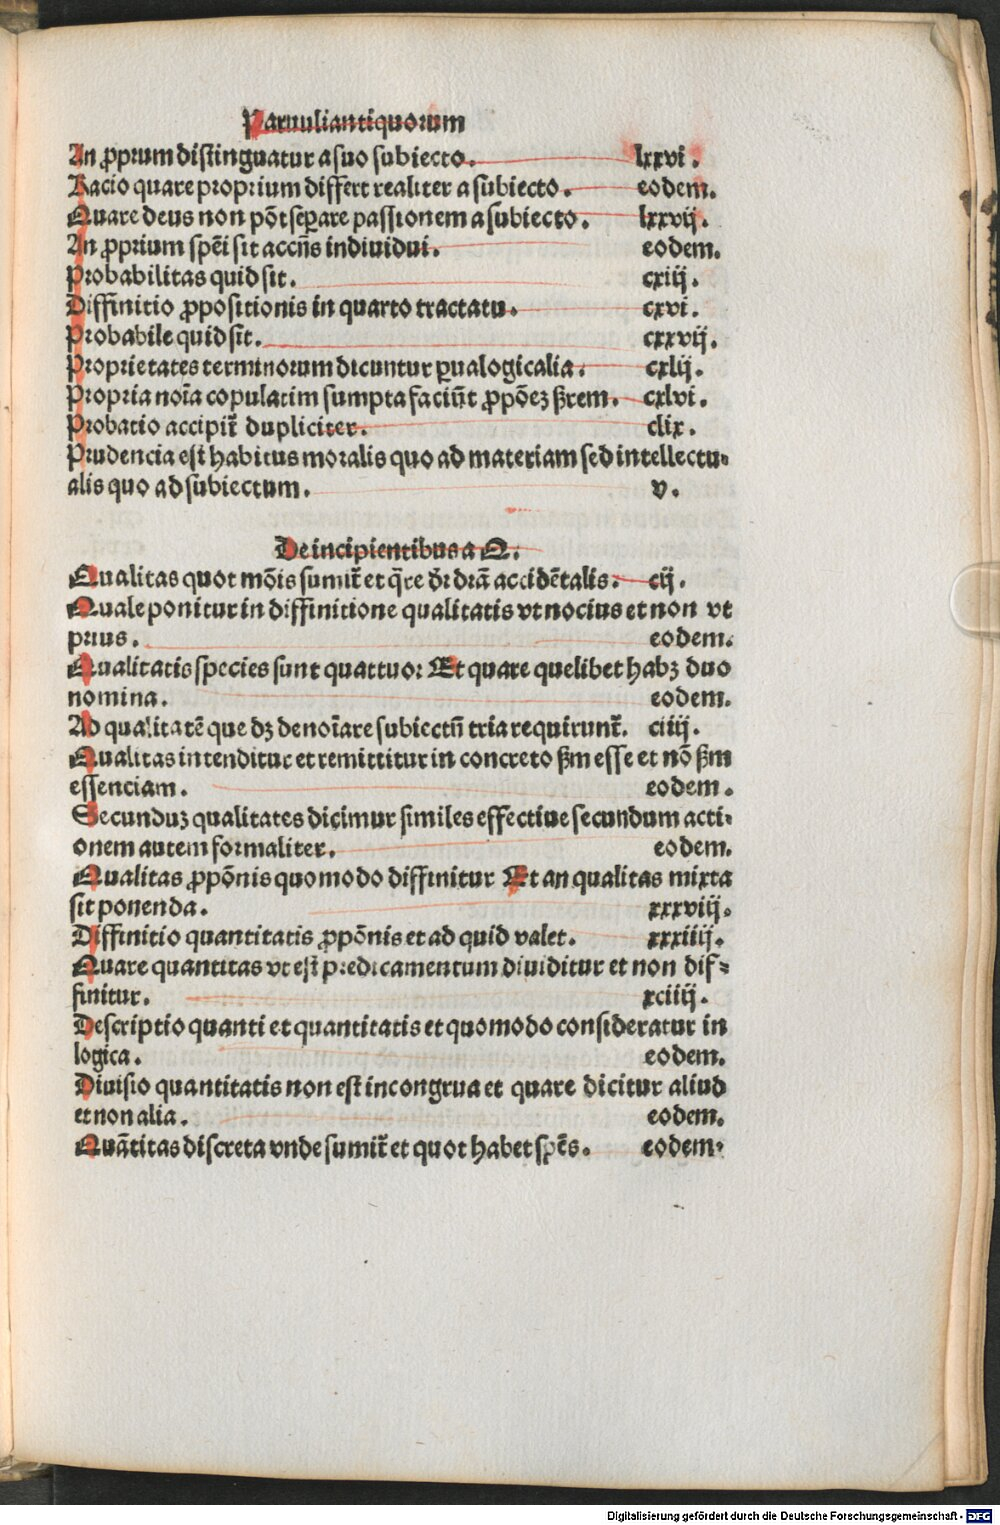 Paruuli antiquorum
An ꝓprum distinguatur a suo subiecto. lxxvi.
Racio quare proprium differt realiter a subiecto. eodem.
Quare deus non põt seꝑare passionem a subiecto. lxxvij.
An ꝓprium spēi sit accñs indiuidui. eodem.
Probabilitas quid sit. cxiij.
Diffinitio ꝓpositionis in quarto tractatu. cxvi.
Probabile quid sit. cxxvij.
Proprietates terminorum dicuntur ꝑua logicalia. cxlij.
Propria noīa copulatim sumpta faciūt ꝓpōeꝫ ẜrem. cxlvi.
Probatio accipit̄ dupliciter. clix.
Prudencia est habitus moralis quo ad materiam sed intellectu-
alis quo ad subiectum. v.
De incipientibus a Q.
Qualitas quot mōis sumit̄ et q̄re dr̄ drā accidētalis. cij.
Quale ponitur in diffinitione qualitatis vt nocius et non vt
prius. eodem.
Qualitatis species sunt quattuor Et quare quelibet habꝫ duo
nomina. eodem.
Ad qualitatē que dꝫ denoīare subiectū tria requirunt̄. ciiij.
Qualitas intenditur et remittitur in concreto ẜm esse et nō ẜm
essenciam. eodem.
Secunduꝫ qualitates dicimur similes effectiue secundum acti-
onem autem formaliter. eodem.
Qualitas ꝓpōnis quomodo diffinitur Et an qualitas mixta
sit ponenda. xxxviij.
Diffinitio quantitatis ꝓpōnis et ad quid valet. xxxiiij.
Quare quantitas vt est predicamentum diuiditur et non dif-
finitur. xciiij.
Descriptio quanti et quantitatis et quomodo consideratur in
logica. eodem.
Diuisio quantitatis non est incongrua et quare dicitur aliud
et non alia. eodem.
Quātitas discreta vnde sumit̄ et quot habet spēs. eodem.
Digitalisierung gefördert durch die Deutsche Forschungsgemeinschaft - DFG